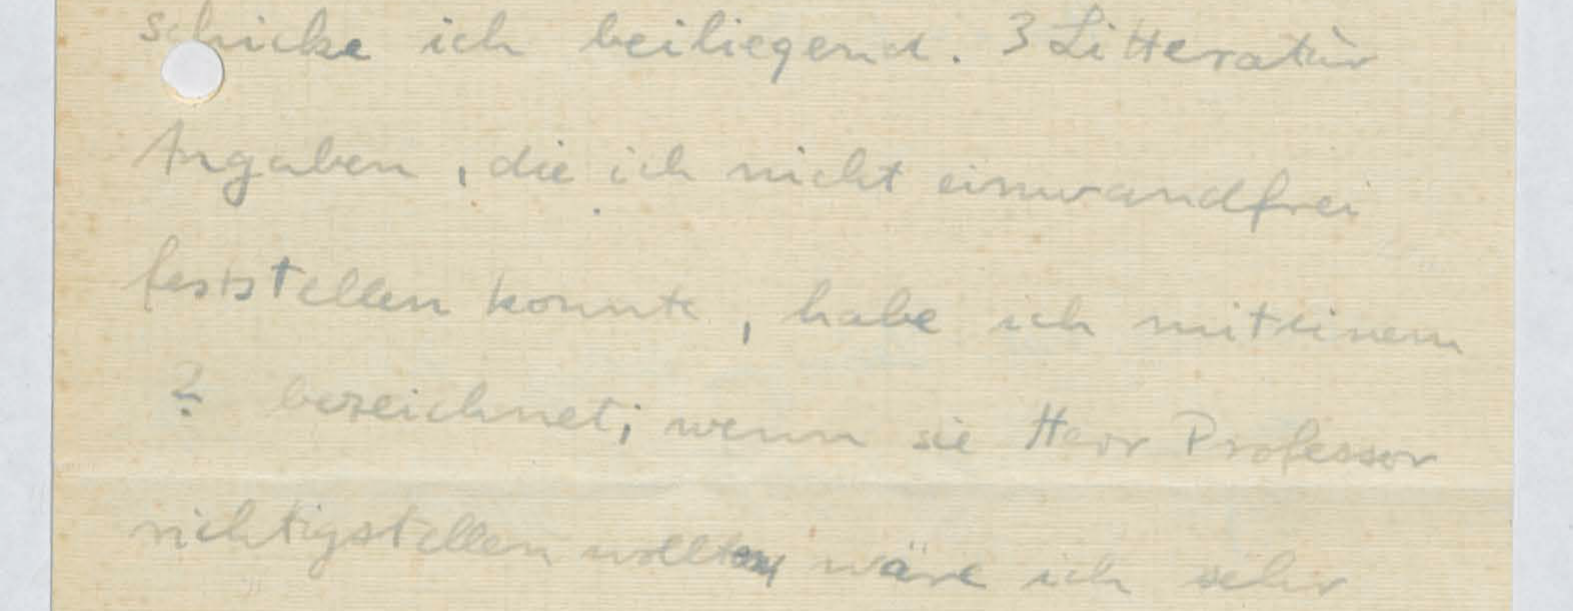 schicke ich beiliegend. 3 Litteratur
Angaben, die ich nicht einwandfrei
feststellen konnte, habe ich mit einem
? bezeichnet; wenn sie Herr Professor
richtigstellen wollten wäre ich sehr